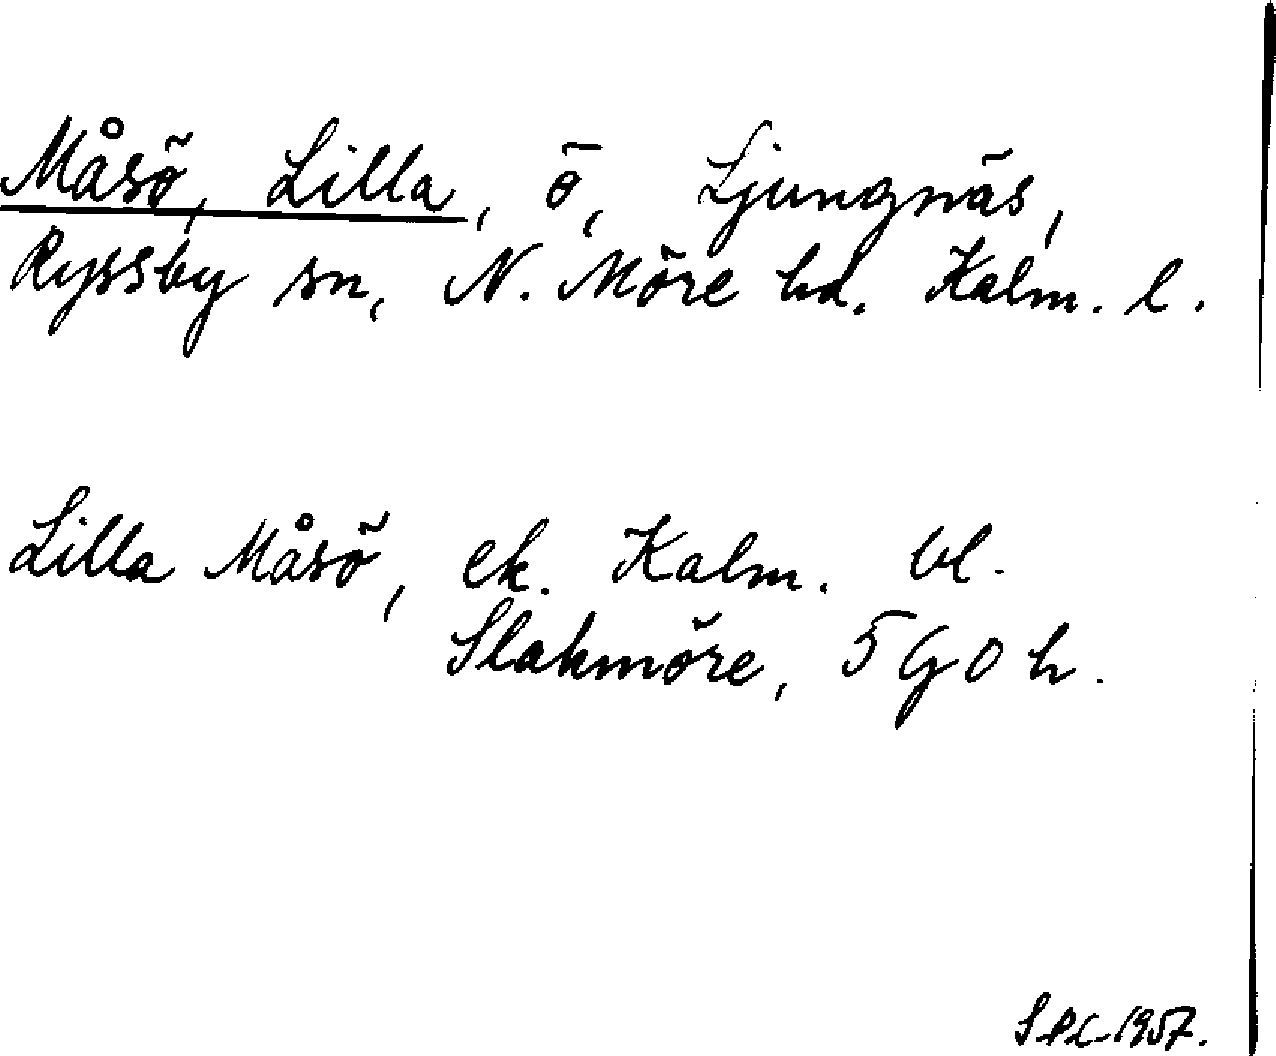 Måsö, Lilla, ö, Ljungnäs,
Ryssby sn, N. Möre hd. Kalm. l.
Lilla Måsö, ek. Kalm. bl.
Slakmöre, 5 G 0 h.
1957.